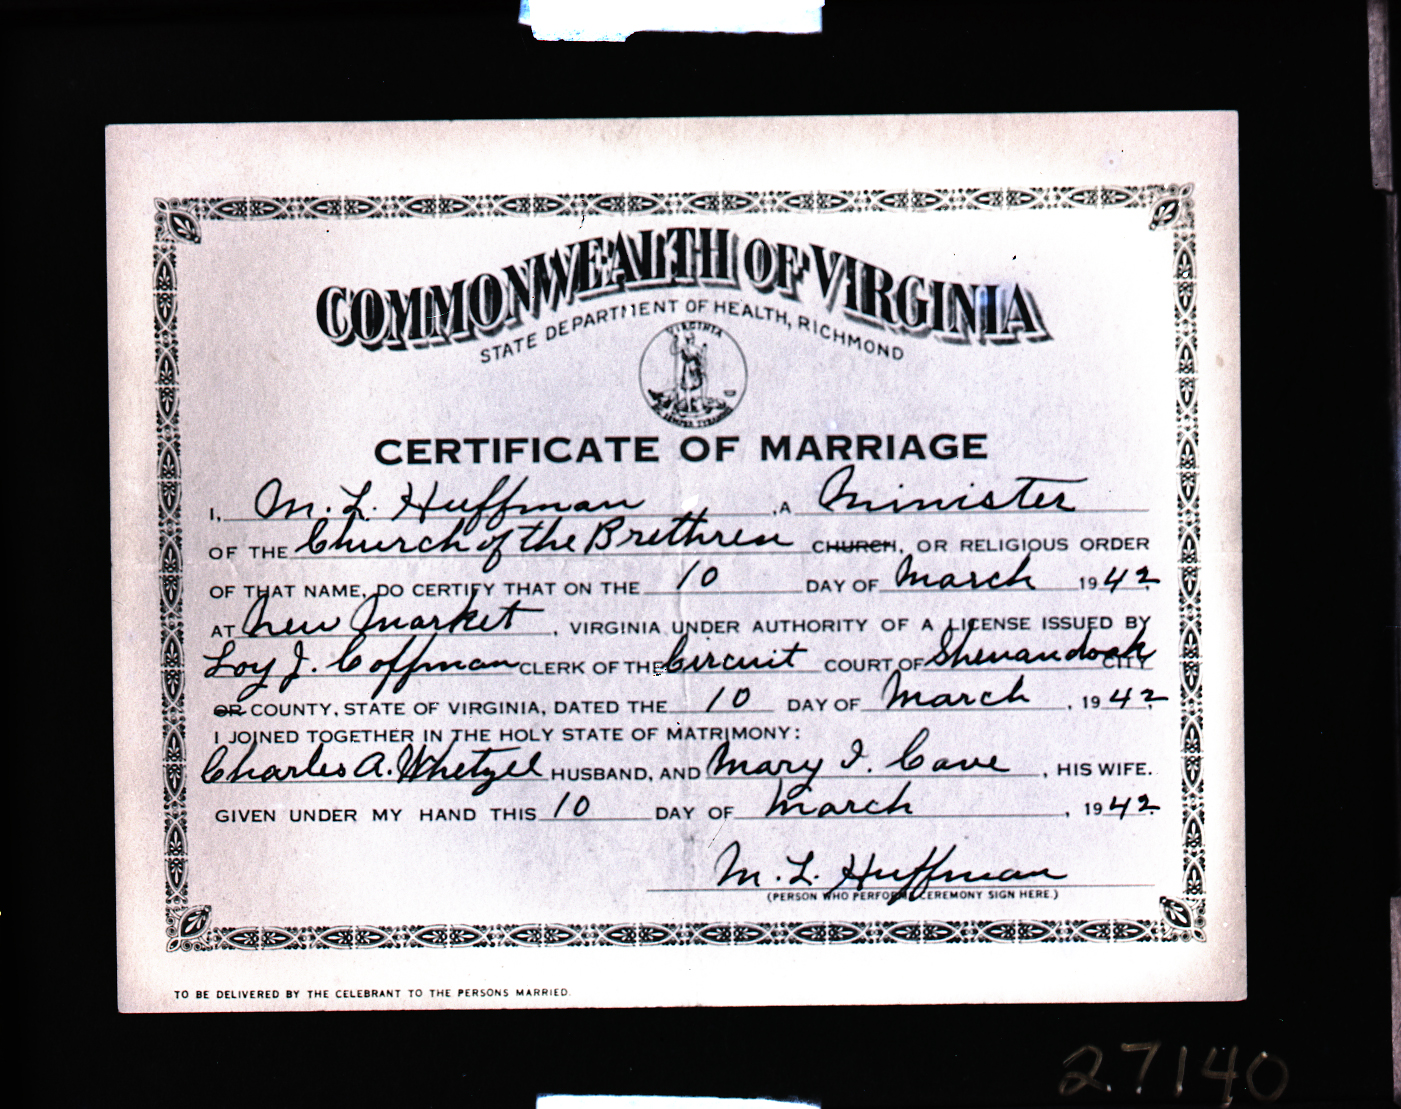 COMMONWEALTH OF VIRGINIA
STATE DEPARTMENT OF HEALTH, RICHMOND
VIRGINIA
SIC SEMPER TYRANNIS
CERTIFICATE OF MARRIAGE
I, M. L. Huffman , A Minister
OF THE Church of the Brethren CHURCH, OR RELIGIOUS ORDER
OF THAT NAME, DO CERTIFY THAT ON THE 10 DAY OF March 1942,
AT New Market , VIRGINIA UNDER AUTHORITY OF A LICENSE ISSUED BY
Loy J. Coffman CLERK OF THE Circuit COURT OF Shenandoah CITY
OR COUNTY, STATE OF VIRGINIA, DATED THE 10 DAY OF March , 1942,
I JOINED TOGETHER IN THE HOLY STATE OF MATRIMONY:
Charles A. Whetzel HUSBAND, AND Mary I. Cave , HIS WIFE.
GIVEN UNDER MY HAND THIS 10 DAY OF March , 1942.
M. L. Huffman
(PERSON WHO PERFORMS CEREMONY SIGN HERE.)
TO BE DELIVERED BY THE CELEBRANT TO THE PERSONS MARRIED.
27140